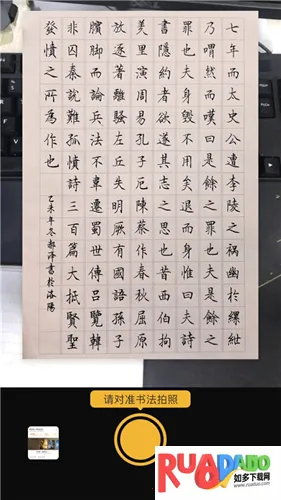 七年而太史公遭李陵之禍幽於縲紲
乃喟然而嘆曰是餘之罪也夫是餘之
罪也夫身毀不用矣退而深惟曰夫詩
書隱約者欲遂其志之思也昔西伯拘
羑里演周易孔子厄陳蔡作春秋屈原
放逐著離騷左丘失明厥有國語孫子
臏腳而論兵法不韋遷蜀世傳呂覽韓
非囚秦說難孤憤詩三百篇大抵賢聖
發憤之所為作也
乙未年冬郝澤書於洛陽
请对准书法拍照
RUADUO
如多下载网
www.ruaduo.com